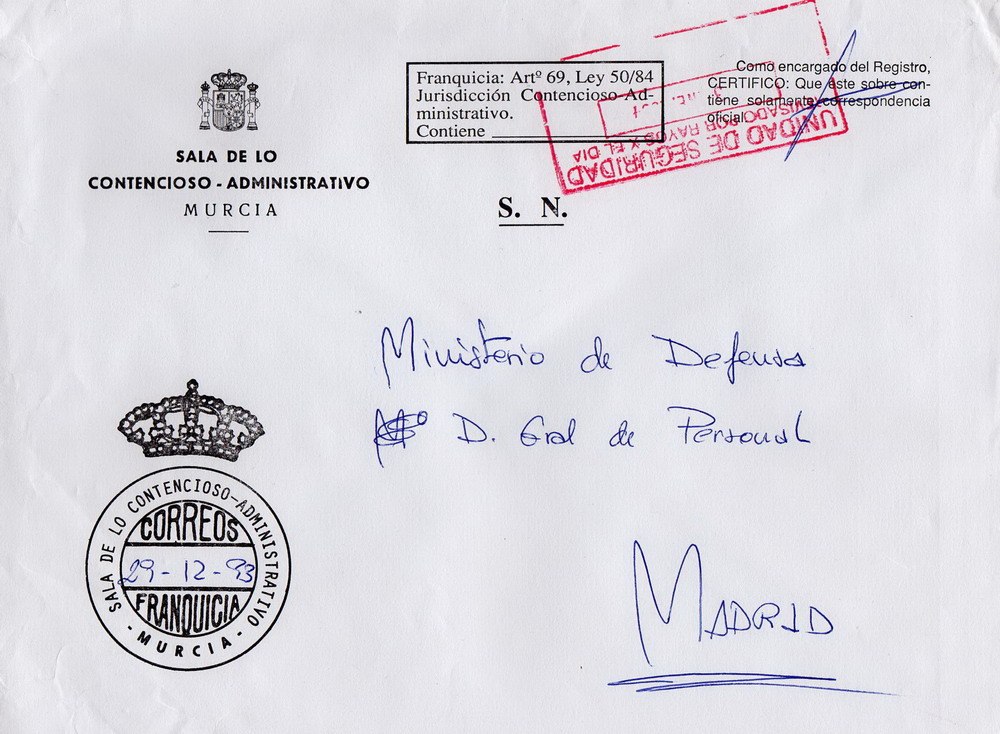 SALA DE LO
CONTENCIOSO - ADMINISTRATIVO
MURCIA
Franquicia: Artº 69, Ley 50/84
Jurisdicción Contencioso-Ad-
ministrativo.
Contiene
Como encargado del Registro,
CERTIFICO: Que éste sobre con-
tiene solamente correspondencia
oficial.
UNIDAD DE SEGURIDAD
REVISADO POR RAYOS X EL DIA
S. N.
Ministerio de Defensa
D. Gral de Personal
MADRID
SALA DE LO CONTENCIOSO-ADMINISTRATIVO
CORREOS
29-12-93
FRANQUICIA
- MURCIA -